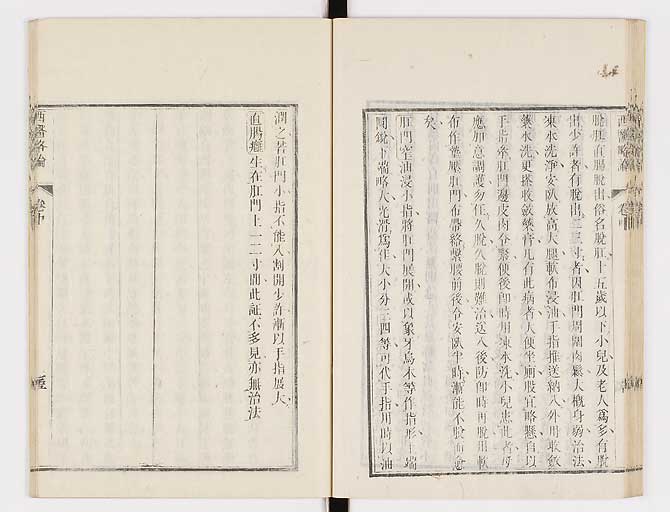 脫肛直腸脫出俗名脫肛十五歲以下小兒及老人爲多有脫
出少許者有脫出二三寸者因肛門周圍肉鬆大槪身弱治法
凍水洗淨安臥放高大腿軟布浸油手指推送納入外用收斂
藥水洗更搽收斂藥膏凡有此病者大便坐廁股宜略懸自以
手指牽肛門邊皮肉令緊便後卽時用凍水洗小兒患此者另
應加意調護勿任久脫久脫則難治送入後防卽時再脫用軟
布作墊壓肛門布帶絡繫腰前後令安臥半時漸能不脫而愈
矣
肛門窄油浸小指將肛門展開或以象牙烏木等作指形上端
圓銳下端略大光滑爲佳大小分三四等可代手指用時以油
潤之若肛門小指不能入割開少許漸以手指展大
直腸癰生在肛門上一二寸間此証不多見亦無治法
西醫略論
卷中